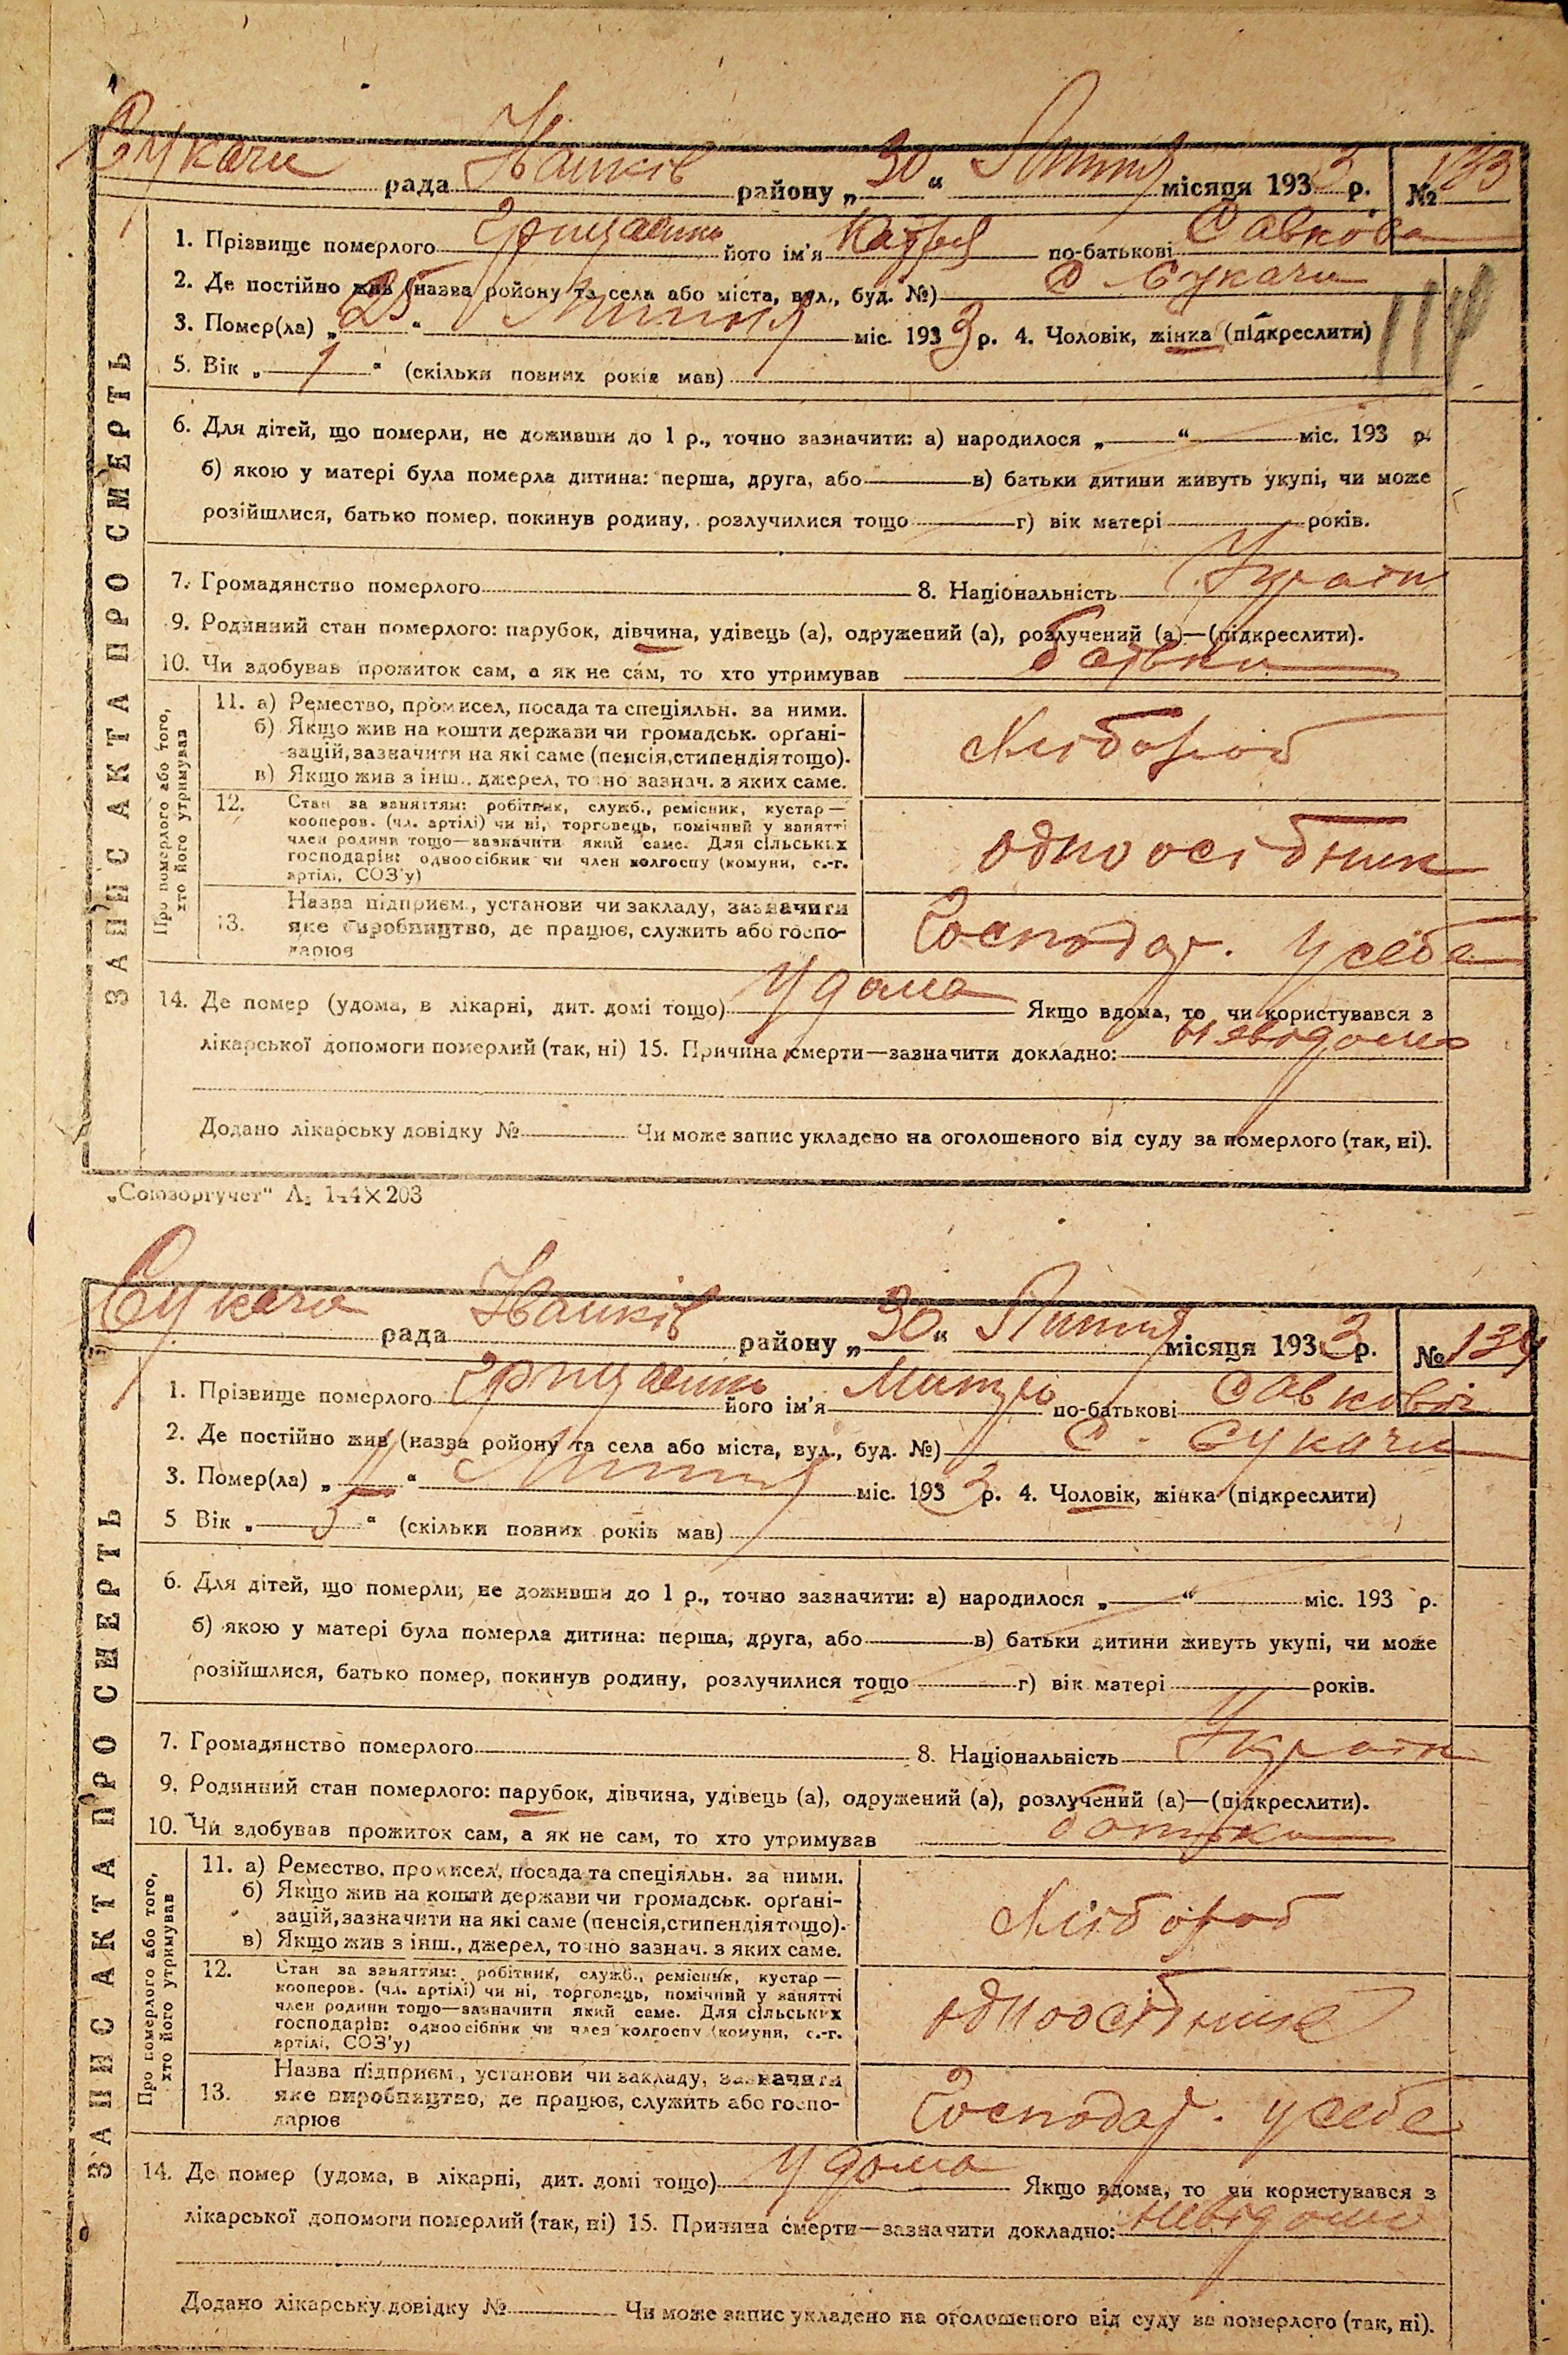 Сукачи рада Іванків району „30“ Липня місяця 1933 р. № 133
1. Прізвище померлого його ім'я по-батькові Савкова
2. Де постійно жив (назва ройону та села або міста, вул., буд. №) С Сукачи
3. Помер(ла) „25“ Липня міс. 1933 р. 4. Чоловік, жінка (підкреслити)
114
5. Вік „1“ (скільки повних років мав)
6. Для дітей, що померли, не доживши до 1 р., точно зазначити: а) народилося „ “ міс. 193 р.
б) якою у матері була померла дитина: перша, друга, або в) батьки дитини живуть укупі, чи може
розійшлися, батько помер, покинув родину, розлучилися тощо г) вік матері років.
7. Громадянство померлого 8. Національність Україн
9. Родинний стан померлого: парубок, дівчина, удівець (а), одружений (а), розлучений (а)—(підкреслити).
10. Чи здобував прожиток сам, а як не сам, то хто утримував батьки
ЗАПИС АКТА ПРО СМЕРТЬ
Про померлого або того,
хто його утримував
11. а) Ремество, промисел, посада та спеціяльн. за ними.
б) Якщо жив на кошти держави чи громадськ. орґані-
зацій, зазначити на які саме (пенсія, стипендія тощо).
в) Якщо жив з інш., джерел, точно зазнач. з яких саме.
Хлібороб
12. Стан за заняттям: робітник, служб., ремісник, кустар—
кооперов. (чл. артілі) чи ні, торговець, помічний у занятті
член родини тощо—зазначити який саме. Для сільських
господарів: одноосібник чи член колгоспу (комуни, с.-г.
артілі, СОЗ'у)
одноосібник
13. Назва підприєм., установи чи закладу, зазначити
яке виробництво, де працює, служить або госпо-
дарює
Господар. у себе
14. Де помер (удома, в лікарні, дит. домі тощо) удома Якщо вдома, то чи користувався з
лікарської допомоги померлий (так, ні) 15. Причина смерти—зазначити докладно: невідомо
Додано лікарську довідку № Чи може запис укладено на оголошеного від суду за померлого (так, ні).
„Союзоргучет“ А5 144×203
Сукачи рада Іванків району „30“ Липня місяця 1933 р. № 134
1. Прізвище померлого його ім'я по-батькові Савкович
2. Де постійно жив (назва ройону та села або міста, вул., буд. №) С. Сукачи
3. Помер(ла) „ “ Липня міс. 1933 р. 4. Чоловік, жінка (підкреслити)
5 Вік „5“ (скільки повних років мав)
6. Для дітей, що померли, не доживши до 1 р., точно зазначити: а) народилося „ “ міс. 193 р.
б) якою у матері була померла дитина: перша, друга, або в) батьки дитини живуть укупі, чи може
розійшлися, батько помер, покинув родину, розлучилися тощо г) вік матері років.
7. Громадянство померлого 8. Національність Україн
9. Родинний стан померлого: парубок, дівчина, удівець (а), одружений (а), розлучений (а)—(підкреслити).
10. Чи здобував прожиток сам, а як не сам, то хто утримував батьки
ЗАПИС АКТА ПРО СМЕРТЬ
Про померлого або того,
хто його утримував
11. а) Ремество, промисел, посада та спеціяльн. за ними.
б) Якщо жив на кошти держави чи громадськ. орґані-
зацій, зазначити на які саме (пенсія, стипендія тощо).
в) Якщо жив з інш., джерел, точно зазнач. з яких саме.
Хлібороб
12. Стан за заняттям: робітник, служб., ремісник, кустар—
кооперов. (чл. артілі) чи ні, торговець, помічний у занятті
член родини тощо—зазначити який саме. Для сільських
господарів: одноосібник чи член колгоспу (комуни, с.-г.
артілі, СОЗ'у)
одноосібник
13. Назва підприєм., установи чи закладу, зазначити
яке виробництво, де працює, служить або госпо-
дарює
Господар. у себе
14. Де помер (удома, в лікарні, дит. домі тощо) удома Якщо вдома, то чи користувався з
лікарської допомоги померлий (так, ні) 15. Причина смерти—зазначити докладно: невідомо
Додано лікарську довідку № Чи може запис укладено на оголошеного від суду за померлого (так, ні).